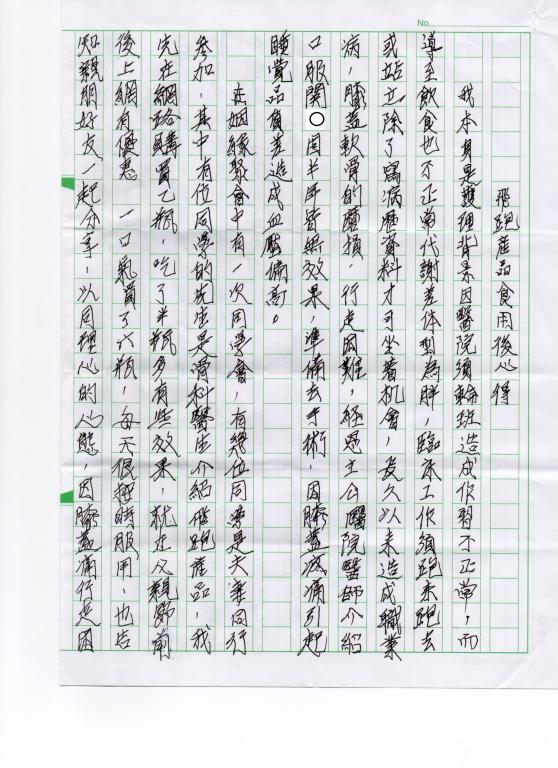 No.
飛跑產品食用後心得
我本身是護理背景因醫院須輪班造成作習不正常，而
導至飲食也不正常代謝差体型為胖，臨床工作須跑來跑去
或站立除了寫病歷資料才可坐著机會，長久以來造成職業
病，膝蓋軟骨的磨損，行走困難，經恩主公醫院醫師介紹
口服関○固半年皆無效果，準備去手術，因膝蓋疼痛引起
睡覺品質差造成血壓偏高。
在姻緣聚會中有一次同學會，有幾位同學是夫妻同行
參加，其中有位同學的先生是骨科醫生介紹飛跑產品，我
先在網路購買乙瓶，吃了半瓶多有些效果，就在父親節前
後上網有優惠 一口氣買了六瓶，每天很按時服用，也告
知親朋好友一起分享，以同理心的心態，因膝蓋痛行走困